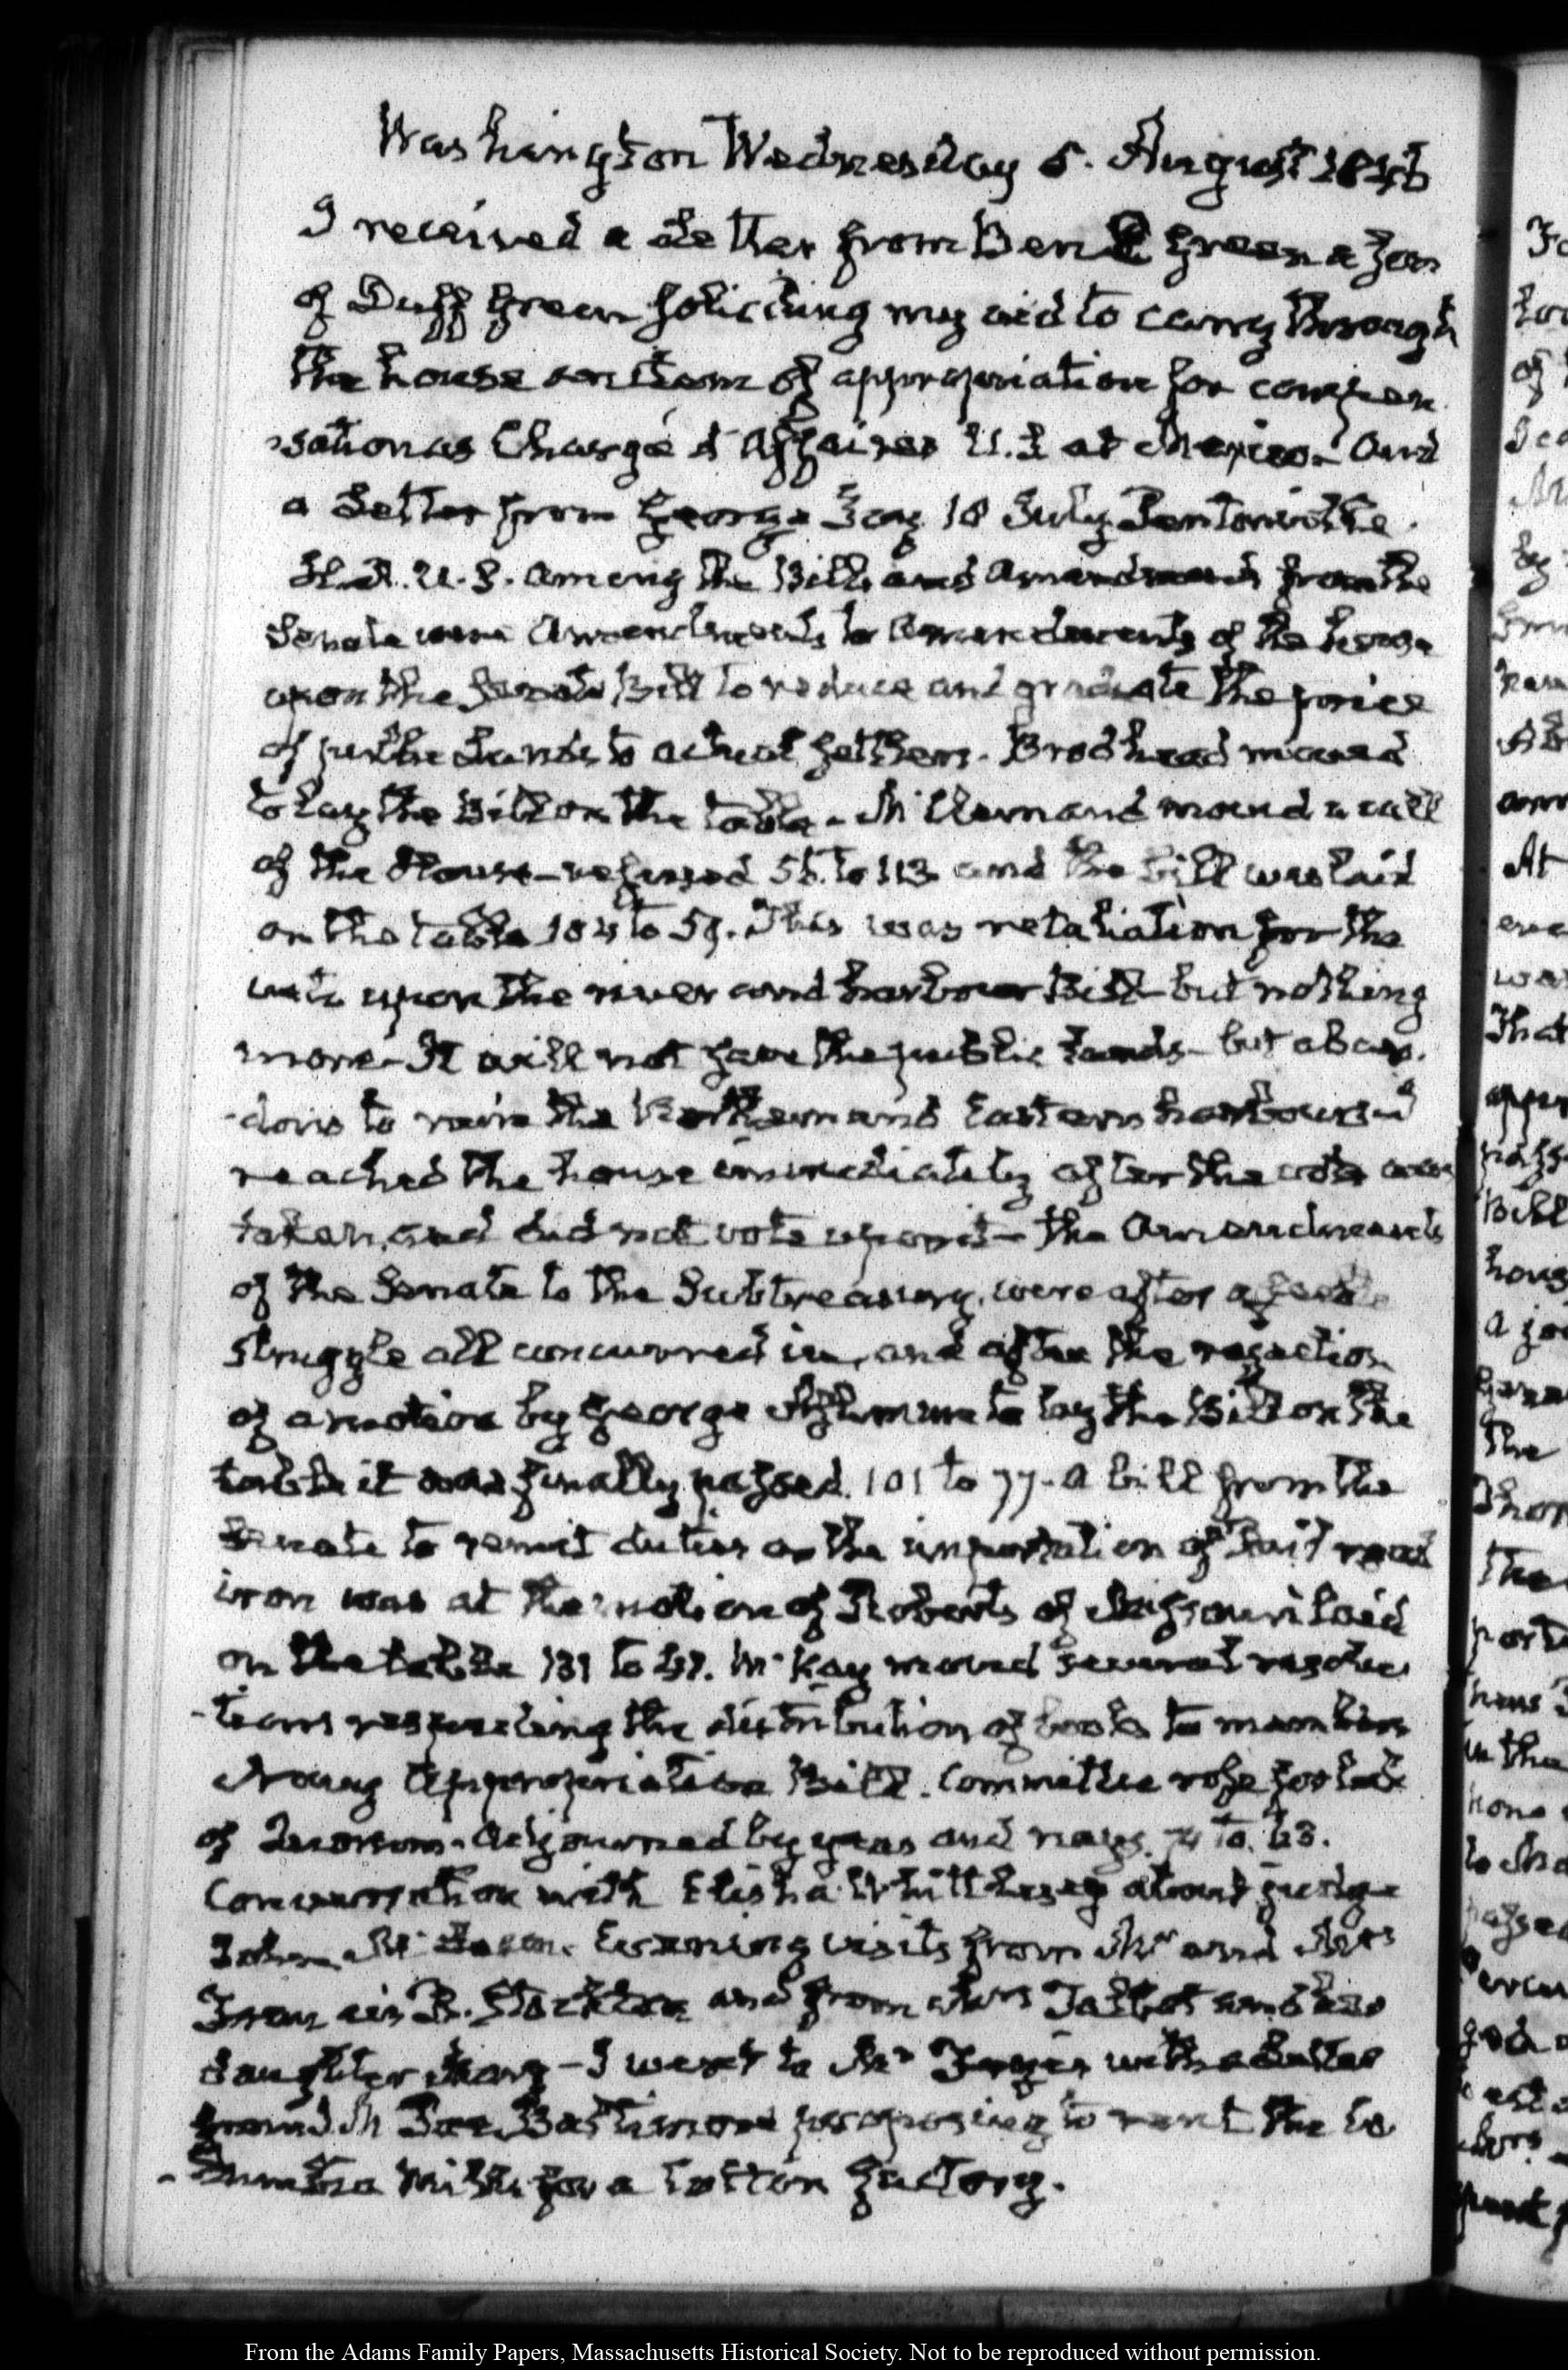 Washington Wednesday 5. August 1846
I received a Letter from Ben E Green a son
of Duff Green soliciting my aid to carry through
the house an item of appropriation for compen
-sation as Chargé d'Affaires U.S. at Mexico. And
a Letter from George Fay 18 July
H.R. U.S. among the Bills and Amendments from the
Senate were Amendments to Amendments of the House
upon the Senate Bill to reduce and graduate the price
of public Lands to actual settlers. Brodhead moved
to lay the Bill on the table. McClernand moved a call
of the House - refused 56 to 113 and the bill was laid
on the table 104 to 59. This was retaliation for the
veto upon the river and harbour Bill - but nothing
more - It will not save the public lands - but aban
-dons to ruin the Northern and Eastern harbours - I
reached the house immediately after the vote was
taken, and did not vote upon it - the Amendments
of the Senate to the Subtreasury, were after a feeble
struggle all concurred in, and after the rejection
of a motion by George Ashmun to lay the Bill on the
table it was finally passed. 101 to 77 - A bill from the
Senate to remit duties on the importation of rail road
iron was at the motion of Roberts of Missouri laid
on the table 131 to 47. McKay moved several resolu
-tions respecting the distribution of books to members
Navy Appropriation Bill. Committee rose for lack
of Quorum. Adjourned by yeas and nays. 74 to. 63.
Conversation with Elisha Whittlesey about judge
John McLean. Evening visits from Mr and Mrs
Francis B. Stockton and from Mrs Talbot and her
daughter Mary - I went to Mr with a Letter
from J. M Baltimore proposing to rent the Co
-lumbia Mills for a Cotton factory.
From the Adams Family Papers, Massachusetts Historical Society. Not to be reproduced without permission.